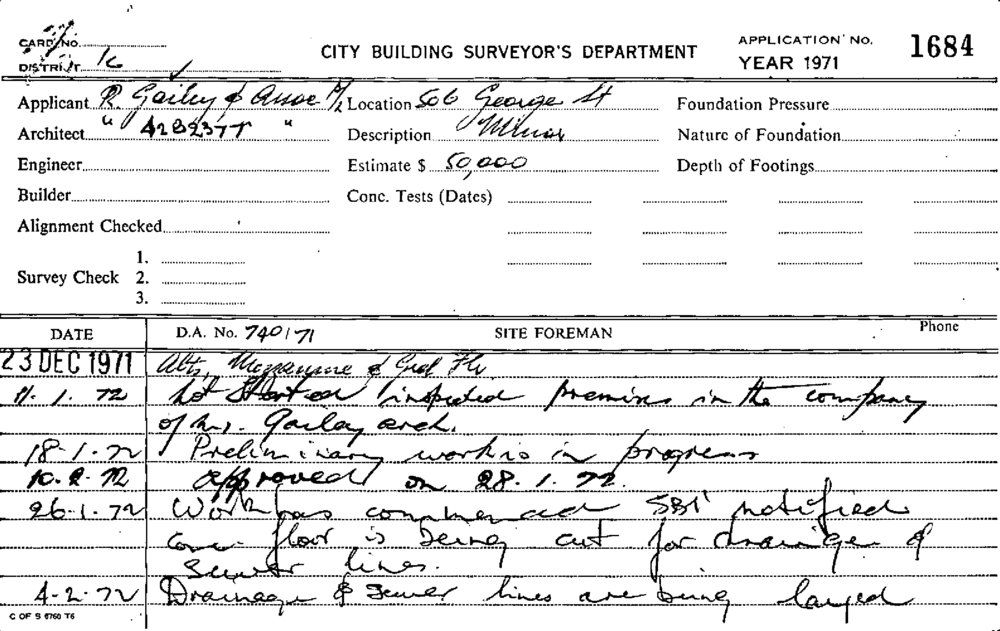 CARD No.
DISTRICT 1c
CITY BUILDING SURVEYOR'S DEPARTMENT
APPLICATION No. 1684
YEAR 1971
Applicant R. Gailey & Assoc P/L Location 506 George St Foundation Pressure
Architect " 4282377 " Description Minor Nature of Foundation
Engineer Estimate $ 50,000 Depth of Footings
Builder Conc. Tests (Dates)
Alignment Checked
1.
Survey Check 2.
3.
DATE D.A. No. 740/71 SITE FOREMAN Phone
23 DEC 1971 Alts, Mezzanine & Grd Flr
11.1.72 Not Started inspected premises in the company
of Mr. Gailey arch.
18-1-72 Preliminary work is in progress
10.2.72 approved on 28.1.72.
26-1-72 Work has commenced SBI notified
conc. floor is being cut for drainage &
sewer lines.
4-2-72 Drainage & sewer lines are being layed
C OF S 6760 T6